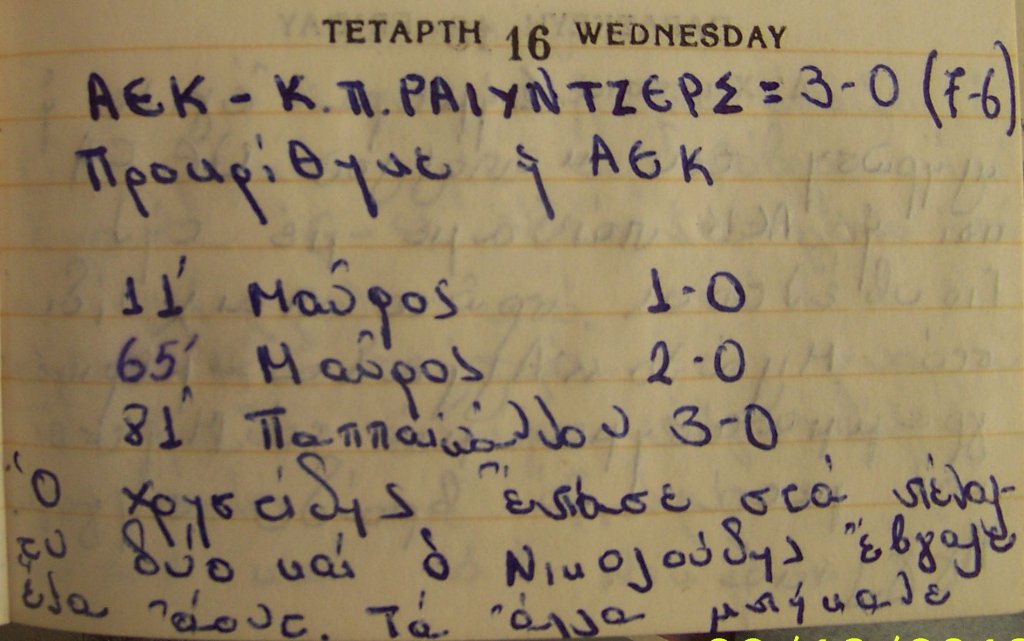 ΤΕΤΑΡΤΗ 16 WEDNESDAY
ΑΕΚ - Κ.Π.ΡΑΙΥΝΤΖΕΡΣ = 3-0 (7-6)
Προκρίθηκε ἡ ΑΕΚ
11΄ Μαῦρος 1-0
65΄ Μαῦρος 2-0
81΄ Παππαϊωάννου 3-0
Ὁ Χρηστίδης ἔπιασε στά πέναλ-
τυ δύο καί ὁ Νικολούδης ἔβγαλε
ἕνα ἄουτ. Τά ἄλλα μπήκανε